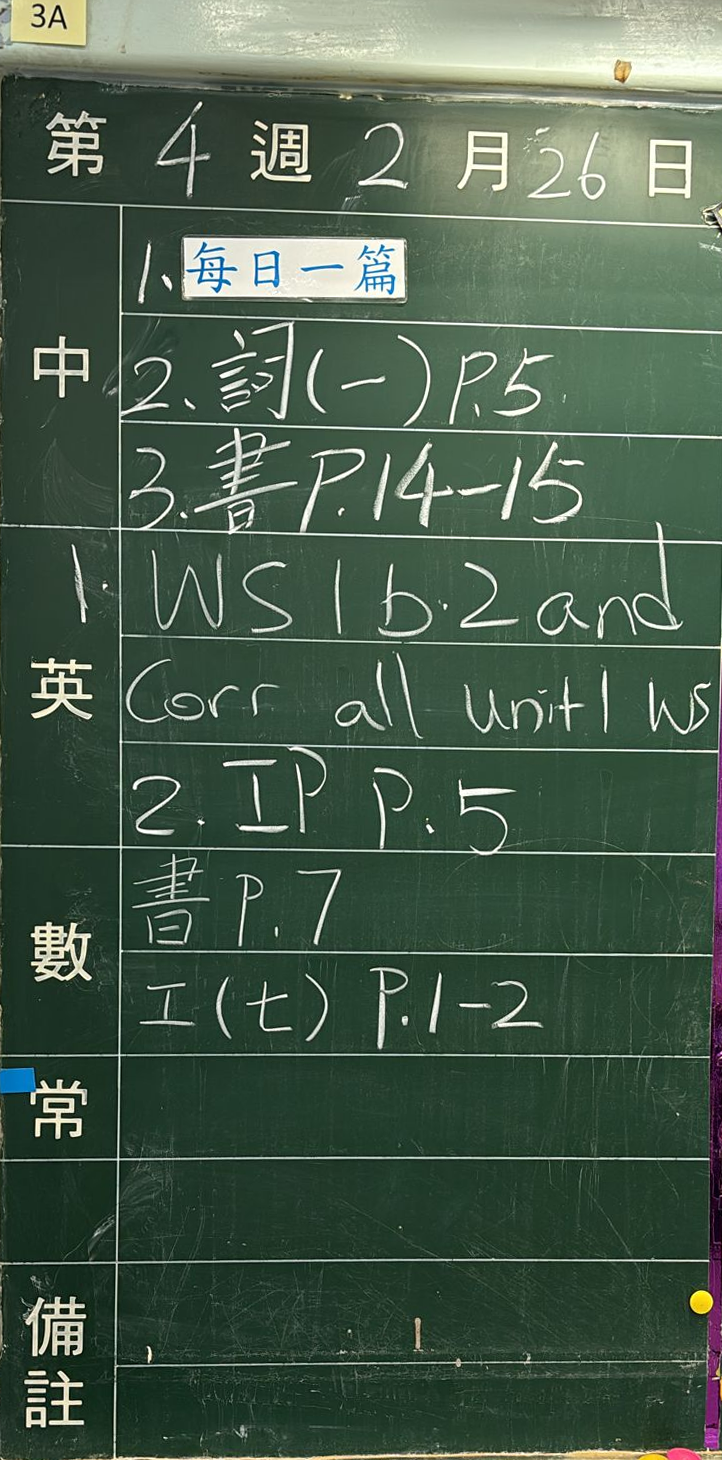 3A
第 4 週 2 月 26 日
中
1、每日一篇
2、詞(一) P.5
3.書 P.14-15
英
1. WS 1 b.2 and
Corr all unit 1 WS
2. IP P.5
數
書 P.7
工(七) P.1-2
常
備註